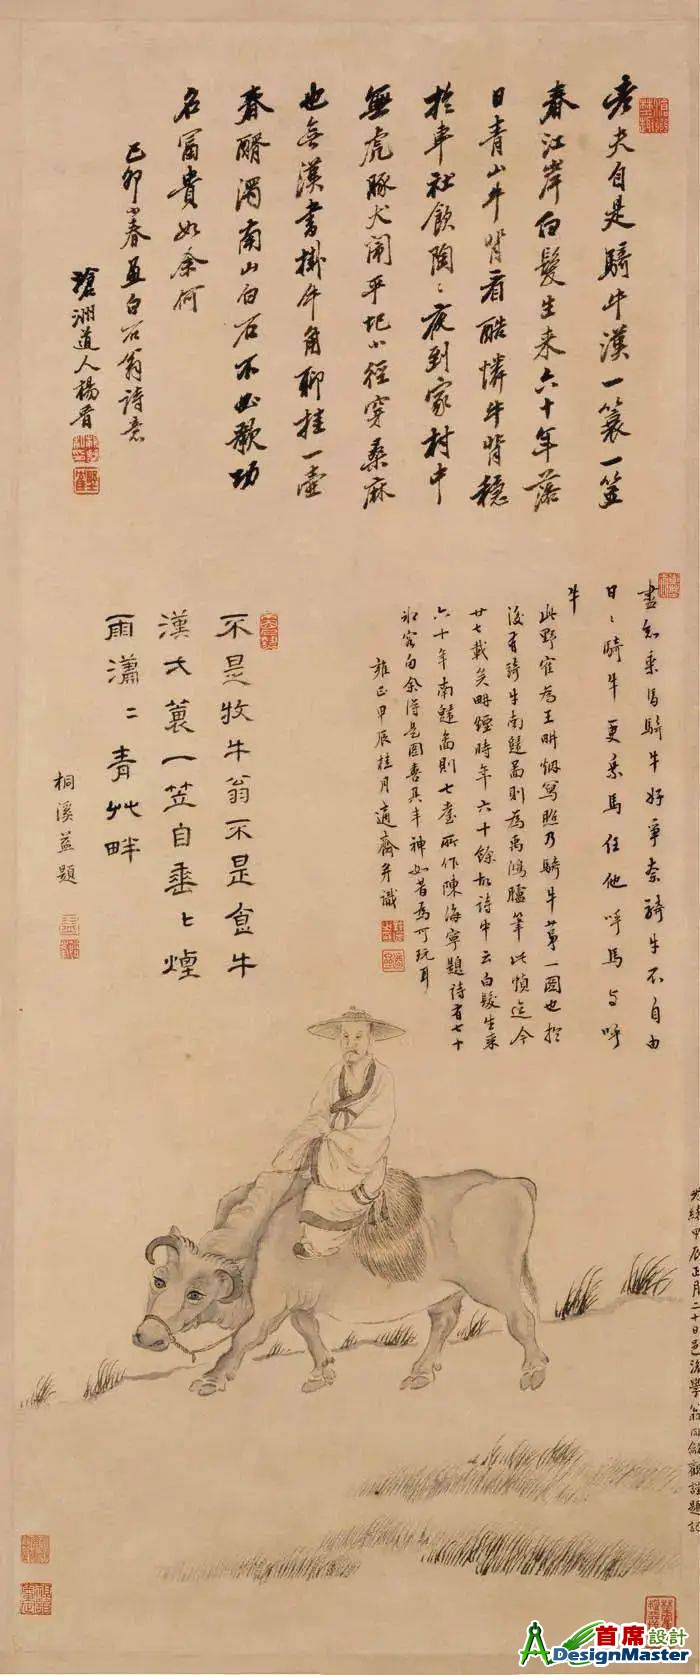 老夫自是騎牛漢一蓑一笠
春江岸白髮生来六十年落
日青山牛背看酷憐牛背穩
於車社飲陶〻夜到家村中
無虎豚犬閙平圯小徑穿桑麻
也無漢書掛牛角聊挂一壺
春醑濁南山白石不必歌功
名冨貴如余何
己卯小春画白石翁詩意
滄洲道人楊晋
盡知乗馬騎牛好爭奈騎牛不自由
日〻騎牛更乗馬任他呼馬与呼
牛
此野寉為王畊烟寫照乃騎牛苐一圖也於
後有騎牛南鐽啚則為禹鴻臚筆此幀迄今
廿七載矣畊煙時年六十餘故詩中云白髮生来
六十年南鐽啚則七耋所作陳海寧題詩有七十
氷容白余得是圖喜其丰神如昔為可玩耳
雍正甲辰桂月適齋并識
不是牧牛翁不是飯牛
漢弌蓑一笠自垂〻煙
雨瀟〻青艸畔
桐溪益題
光緒甲辰正月二十日邑後學翁同龢觀謹題記
首席設計
ADesignMaster